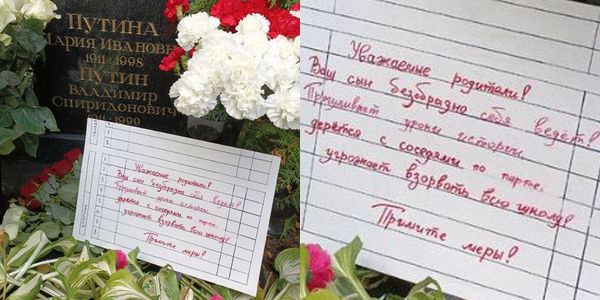 ПУТИНА
МАРИЯ ИВАНОВН
1911-1998
ПУТИН
ВЛАДИМИР
СПИРИДОНОВИЧ
1911-1999
Уважаемые родители!
Ваш сын безобразно себя ведёт!
Прогуливает уроки истории,
дерётся с соседями по парте,
угрожает взорвать всю школу!
Примите меры!
Уважаемые родители!
Ваш сын безобразно себя ведёт!
Прогуливает уроки истории,
дерётся с соседями по парте,
угрожает взорвать всю школу!
Примите меры!